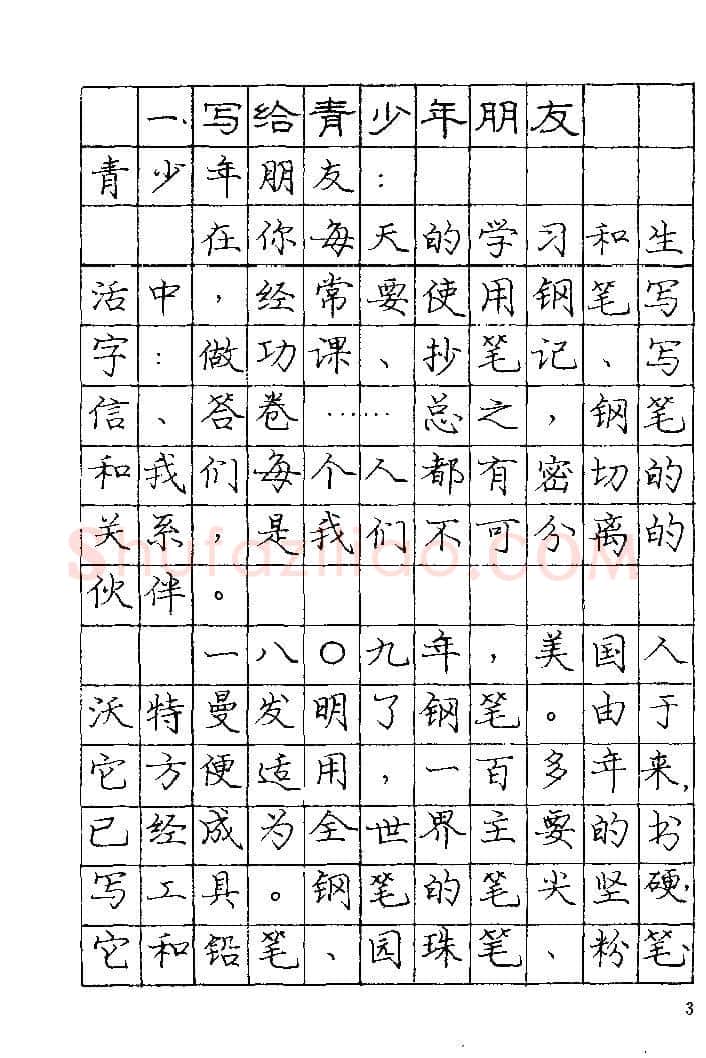 一、写给青少年朋友
青少年朋友：
在你每天的学习和生
活中，经常要使用钢笔写
字：做功课、抄笔记、写
信、答卷……总之，钢笔
和我们每个人都有密切的
关系，是我们不可分离的
伙伴。
一八〇九年，美国人
沃特曼发明了钢笔。由于
它方便适用，一百多年来，
已经成为全世界主要的书
写工具。钢笔的笔尖坚硬，
它和铅笔、园珠笔、粉笔、
Shufaziliao.COM
3